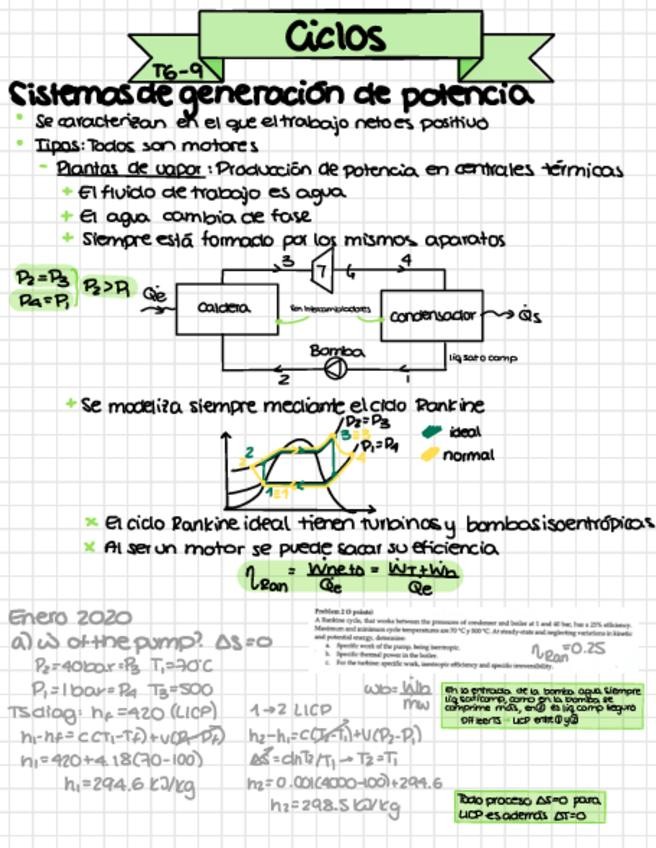 Ciclos
T6-9
Sistemas de generación de potencia
• Se caracterizan en el que el trabajo neto es positivo
• Tipos: Todos son motores
- Plantas de vapor: Producción de potencia en centrales térmicas
+ El fluido de trabajo es agua
+ El agua cambia de fase
+ Siempre está formado por los mismos aparatos
P2=P3
P4=P1
P2>P1
Q̇e
Caldera
3
T
4
Son intercambiadores
Condensador
Q̇s
liq sat o comp
Bomba
2
1
+ Se modeliza siempre mediante el ciclo Rankine
P2=P3
P1=P4
ideal
normal
x El ciclo Rankine ideal tienen turbinas y bombas isoentrópicas
x Al ser un motor se puede sacar su eficiencia
ηRan = Ẇneto/Q̇e = ẆT+Ẇb/Q̇e
Enero 2020
a) ω of the pump? ΔS=0
P2=40bar=P3 T1=70ºC
P1=1bar=P4 T3=500
TS diag: hf=420 (LICP)
h1-hf=c(T1-Tf)+v(P1-Pf)
h1=420+4.18(70-100)
h1=294.6 kJ/kg
Problem 2 (3 points)
A Rankine cycle, that works between the pressures of condenser and boiler at 1 and 40 bar, has a 25% efficiency.
Maximum and minimum cycle temperatures are 70 ºC y 500 ºC. At steady-state and neglecting variations in kinetic
and potential energy, determine:
a. Specific work of the pump, being isentropic.
b. Specific thermal power in the boiler.
c. For the turbine: specific work, isentropic efficiency and specific irreversibility.
ηRan=0.25
ωb=Ẇb/ṁw
1→2 LICP
h2-h1=c(T2-T1)+v(P2-P1)
ΔS=clnT2/T1→T2=T1
h2=0.001(4000-100)+294.6
h2=298.5 kJ/kg
En la entrada de la bomba agua siempre
liq sat/comp, como en la bomba se
comprime más, en② es liq comp seguro
LICP entre ① y ②
Todo proceso ΔS=0 para
LICP es además ΔT=0